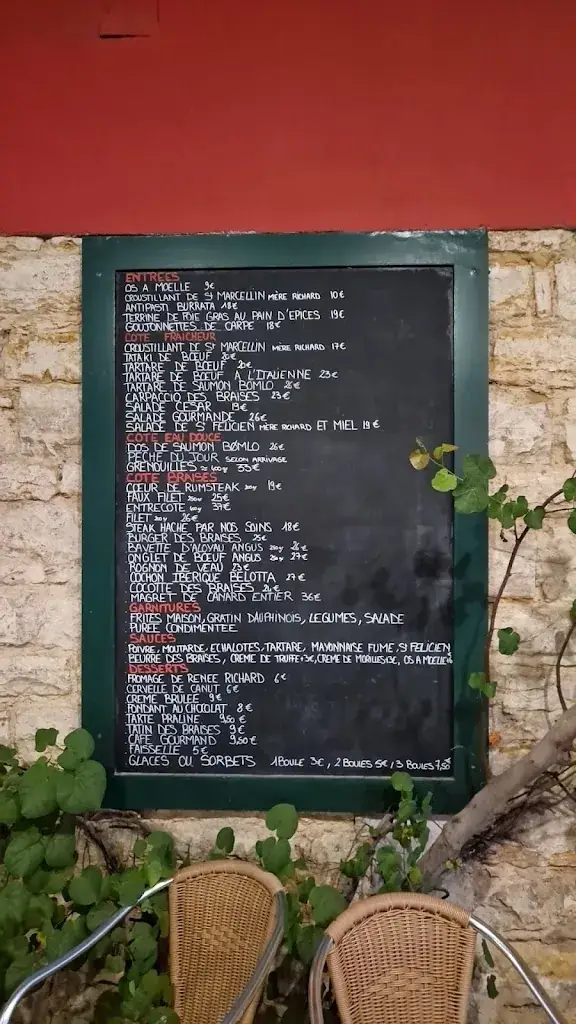 ENTREES
OS A MOELLE 9€
CROUSTILLANT DE St MARCELLIN MÈRE RICHARD 10€
ANTIPASTI BURRATA 18€
TERRINE DE FOIE GRAS AU PAIN D'EPICES 19€
GOUJONNETTES DE CARPE 18€
COTE FRAICHEUR
CROUSTILLANT DE St MARCELLIN MÈRE RICHARD 17€
TATAKI DE BŒUF
TARTARE DE BŒUF
TARTARE DE BŒUF A L'ITALIENNE 23€
TARTARE DE SAUMON BOMLO 26€
CARPACCIO DES BRAISES 23€
SALADE CESAR
SALADE GOURMANDE 26€
SALADE DE St FELICIEN MÈRE RICHARD ET MIEL 19€
COTE EAU DOUCE
DOS DE SAUMON BØMLO 26€
PECHE DU JOUR SELON ARRIVAGE
GRENOUILLES 33€
COTE BRAISES
CŒUR DE RUMSTEAK 19€
FAUX FILET 25€
ENTRECOTE 37€
FILET 26€
STEAK HACHE PAR NOS SOINS 18€
BURGER DES BRAISES
BAVETTE D'ALOYAU ANGUS 26€
ONGLET DE BŒUF ANGUS 27€
ROGNON DE VEAU 23€
COCHON IBERIQUE BELOTTA 27€
COCOTTE DES BRAISES
MAGRET DE CANARD ENTIER 36€
GARNITURES
FRITES MAISON, GRATIN DAUPHINOIS, LEGUMES, SALADE
PUREE CONDIMENTEE
SAUCES
POIVRE, MOUTARDE, ECHALOTES, TARTARE, MAYONNAISE FUME, St FELICIEN
BEURRE DES BRAISES, CREME DE TRUFFE+3€, CREME DE MORILLES+3€, OS A MOELLE
DESSERTS
FROMAGE DE RENEE RICHARD 6€
CERVELLE DE CANUT 6€
CREME BRULEE 9€
FONDANT AU CHOCOLAT 8€
TARTE PRALINE 9,50€
TATIN DES BRAISES 9€
CAFE GOURMAND 9,50€
FAISSELLE 5€
GLACES OU SORBETS 1 BOULE 3€, 2 BOULES 5€, 3 BOULES 7,50